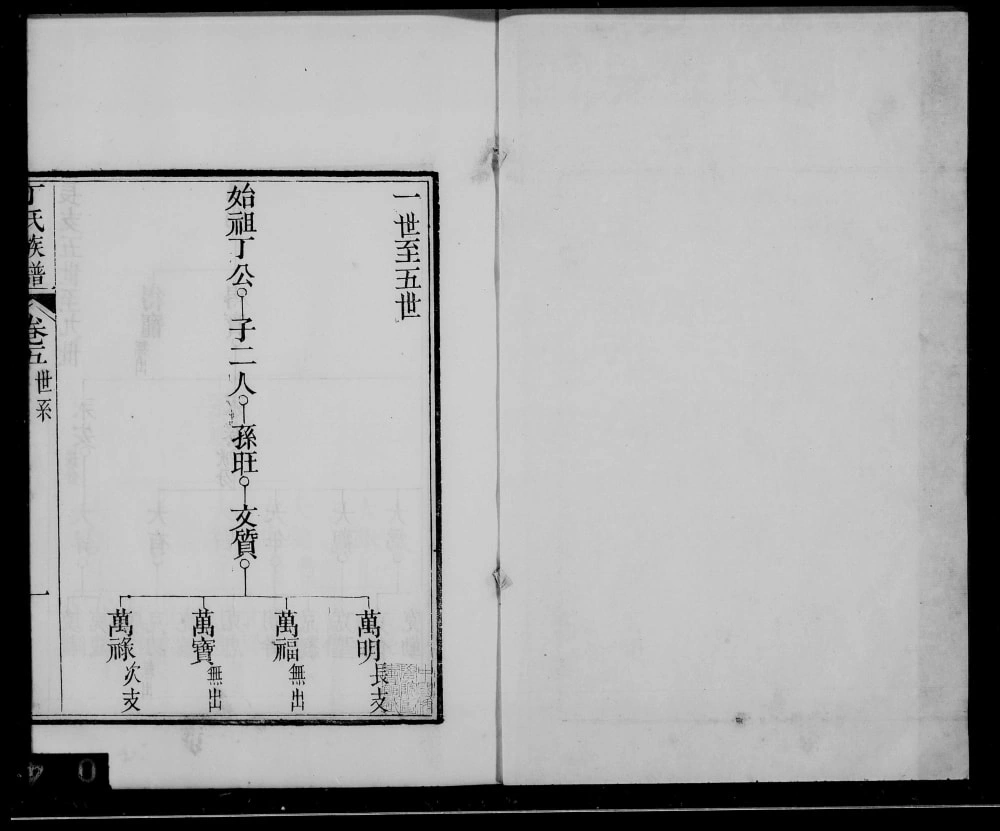 一世至五世
始祖丁公
子二人
孫旺
文質
萬明 長支
萬福 無出
萬寶 無出
萬祿 次支
丁氏族譜
卷五 世系
一